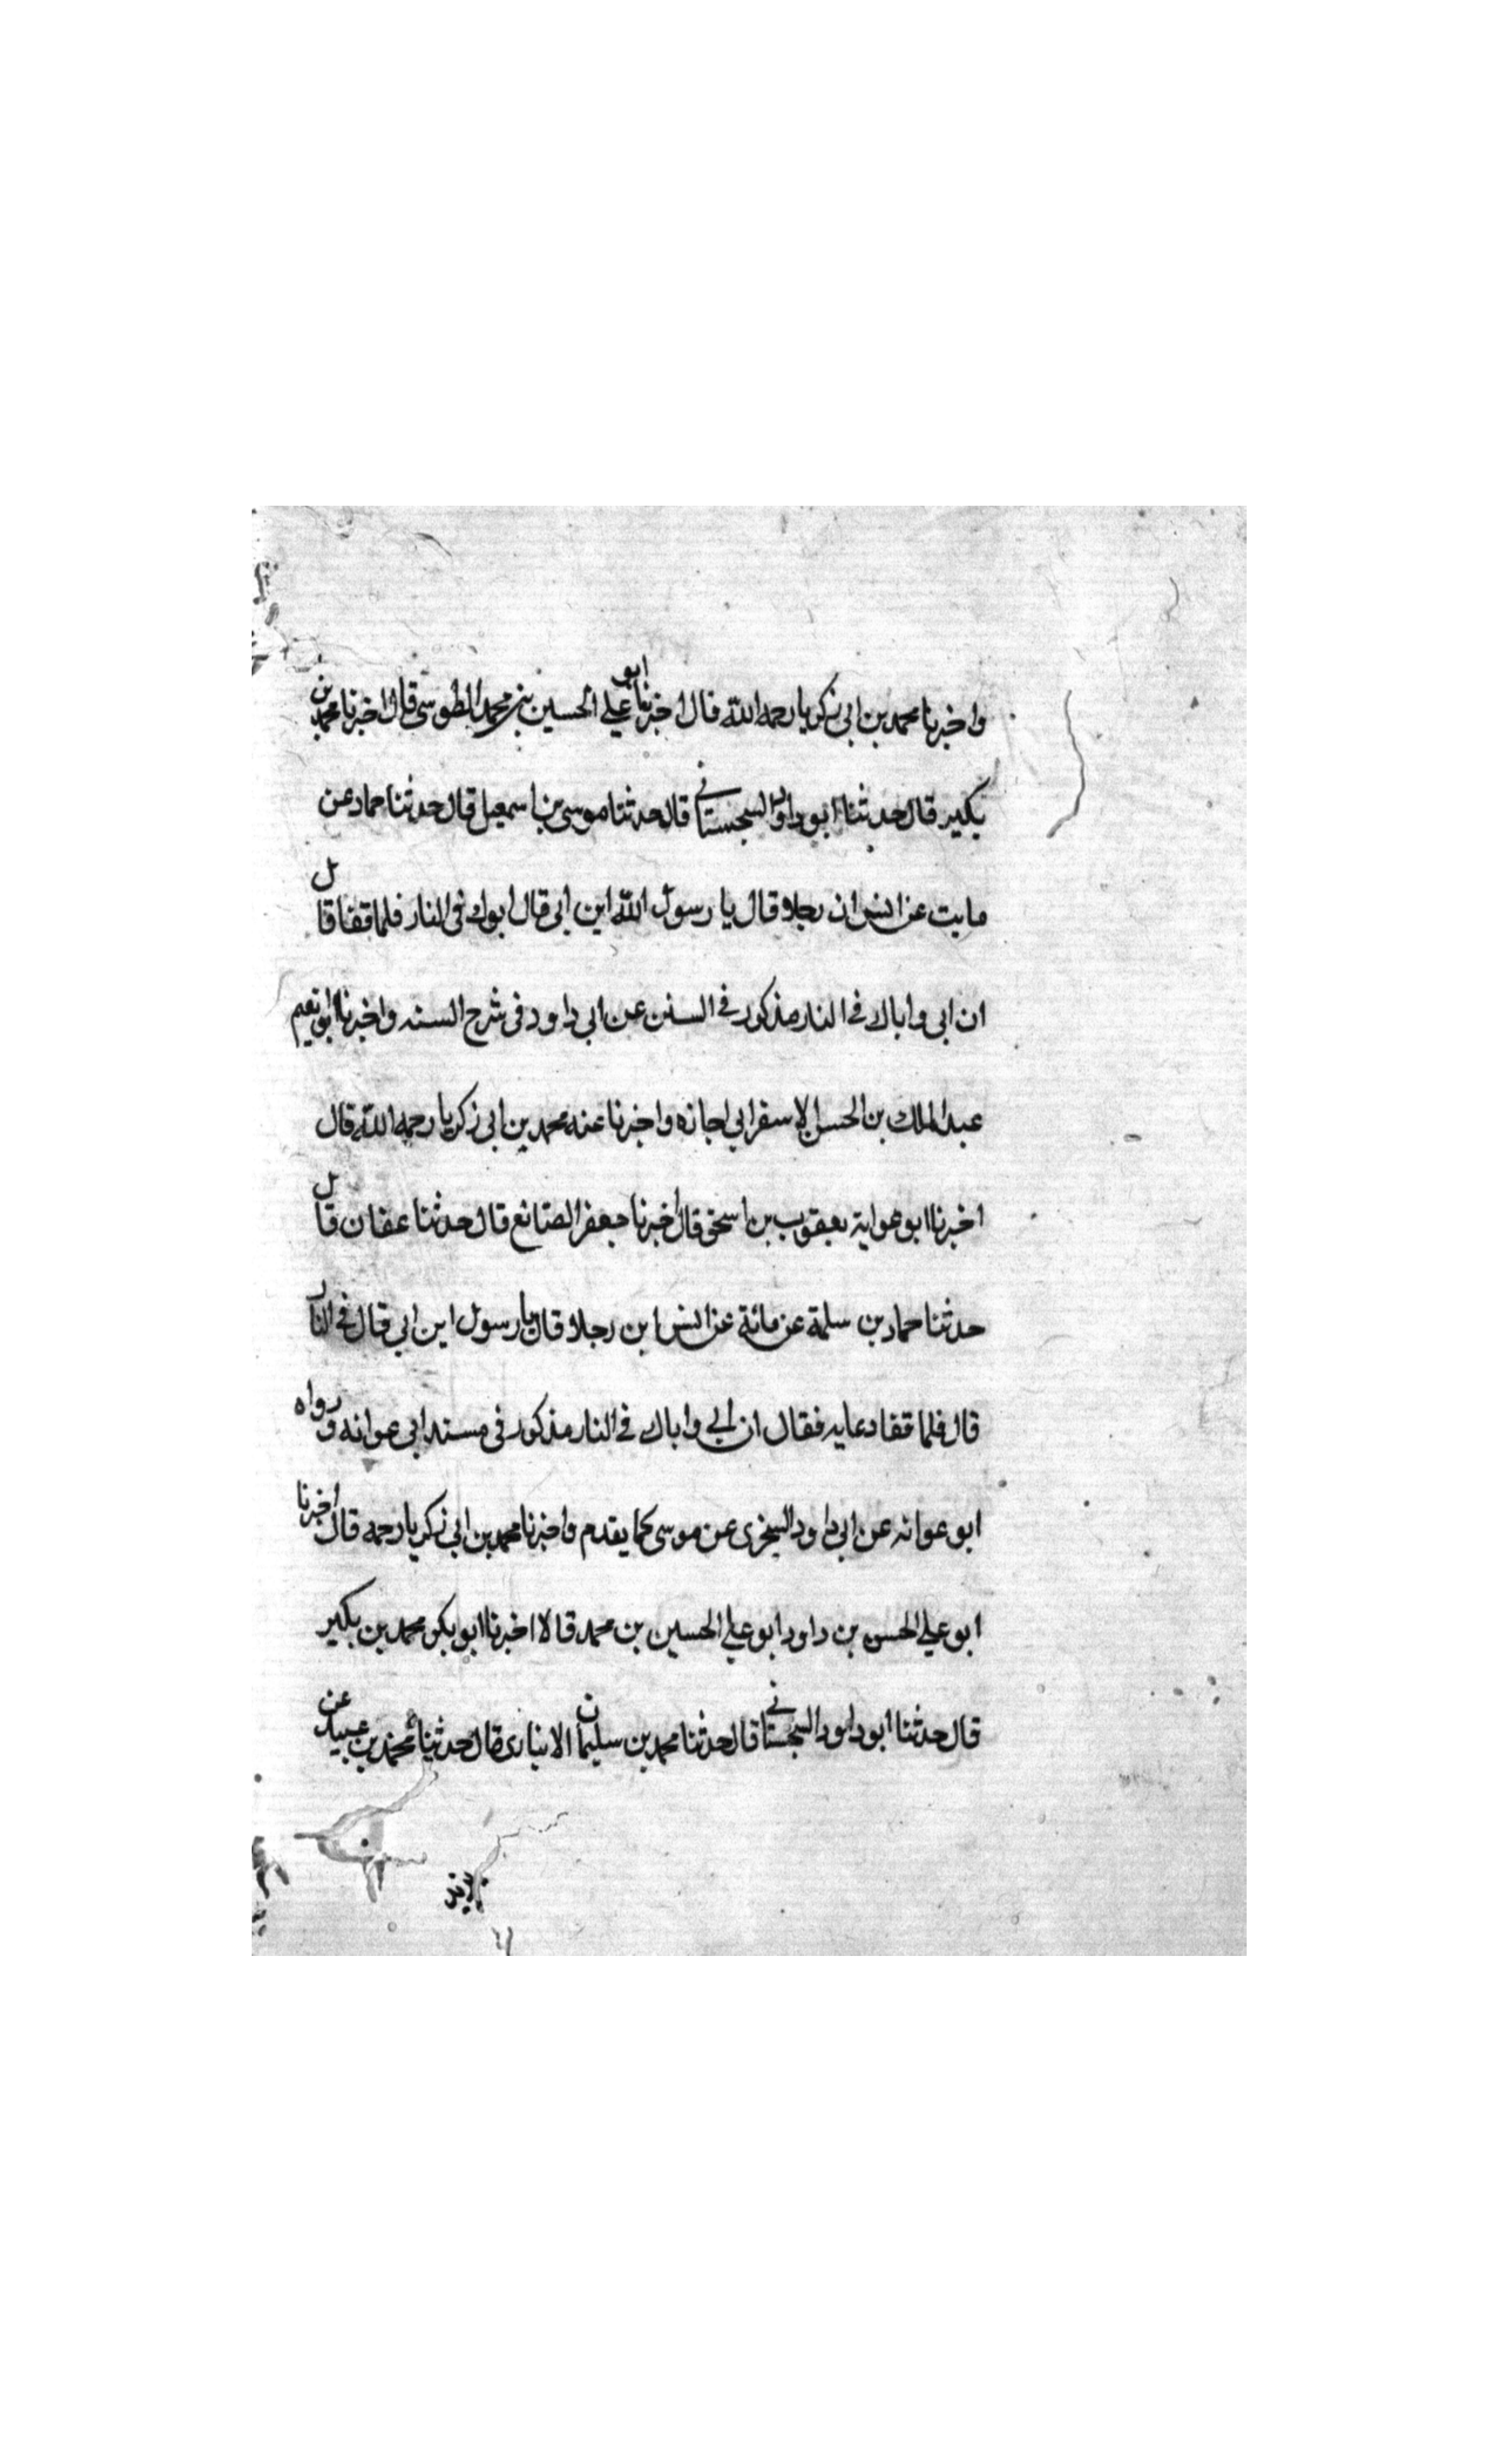 واخبرنا محمد بن ابي زكريا رحمه الله قال اخبرنا ابو علي الحسين بن محمد الطوسي قال اخبرنا محمد بن
بكير قال حدثنا ابو داود السجستاني قال حدثنا موسى بن اسمعيل قال حدثنا حماد عن
مابت عن انس ان رجلا قال يا رسول الله اين ابي قال ابوك في النار فلما قفا قال
ان ابي واباك في النار مذكور في السنن عن ابي داود في شرح السنه واخبرنا ابو نعيم
عبد الملك بن الحسن الاسفرابي اجازه واخبرنا عنه محمد بن ابي زكريا رحمه الله قال
اخبرنا ابو عواية يعقوب بن اسحق قال اخبرنا جعفر الصائغ قال حدثنا عفان قال
حدثنا حماد بن سلمة عن مائة عن انس ابن رجلا قال يا رسول اين ابي قال في النار
قال فلما قفا دعايه فقال ان ابي واباك في النار مذكور في مسند ابي عوانه ورواه
ابو عوانه عن ابي داود السجزى عن موسى كما يقدم واخبرنا محمد بن ابي زكريا رحمه قال اخبرنا
ابو علي الحسن بن داود ابو علي الحسين بن محمد قالا اخبرنا ابو بكر محمد بن بكير
قال حدثنا ابو داود السجستاني قال حدثنا محمد بن سليمان الانبارى قال حدثنا محمد بن عبيد عن